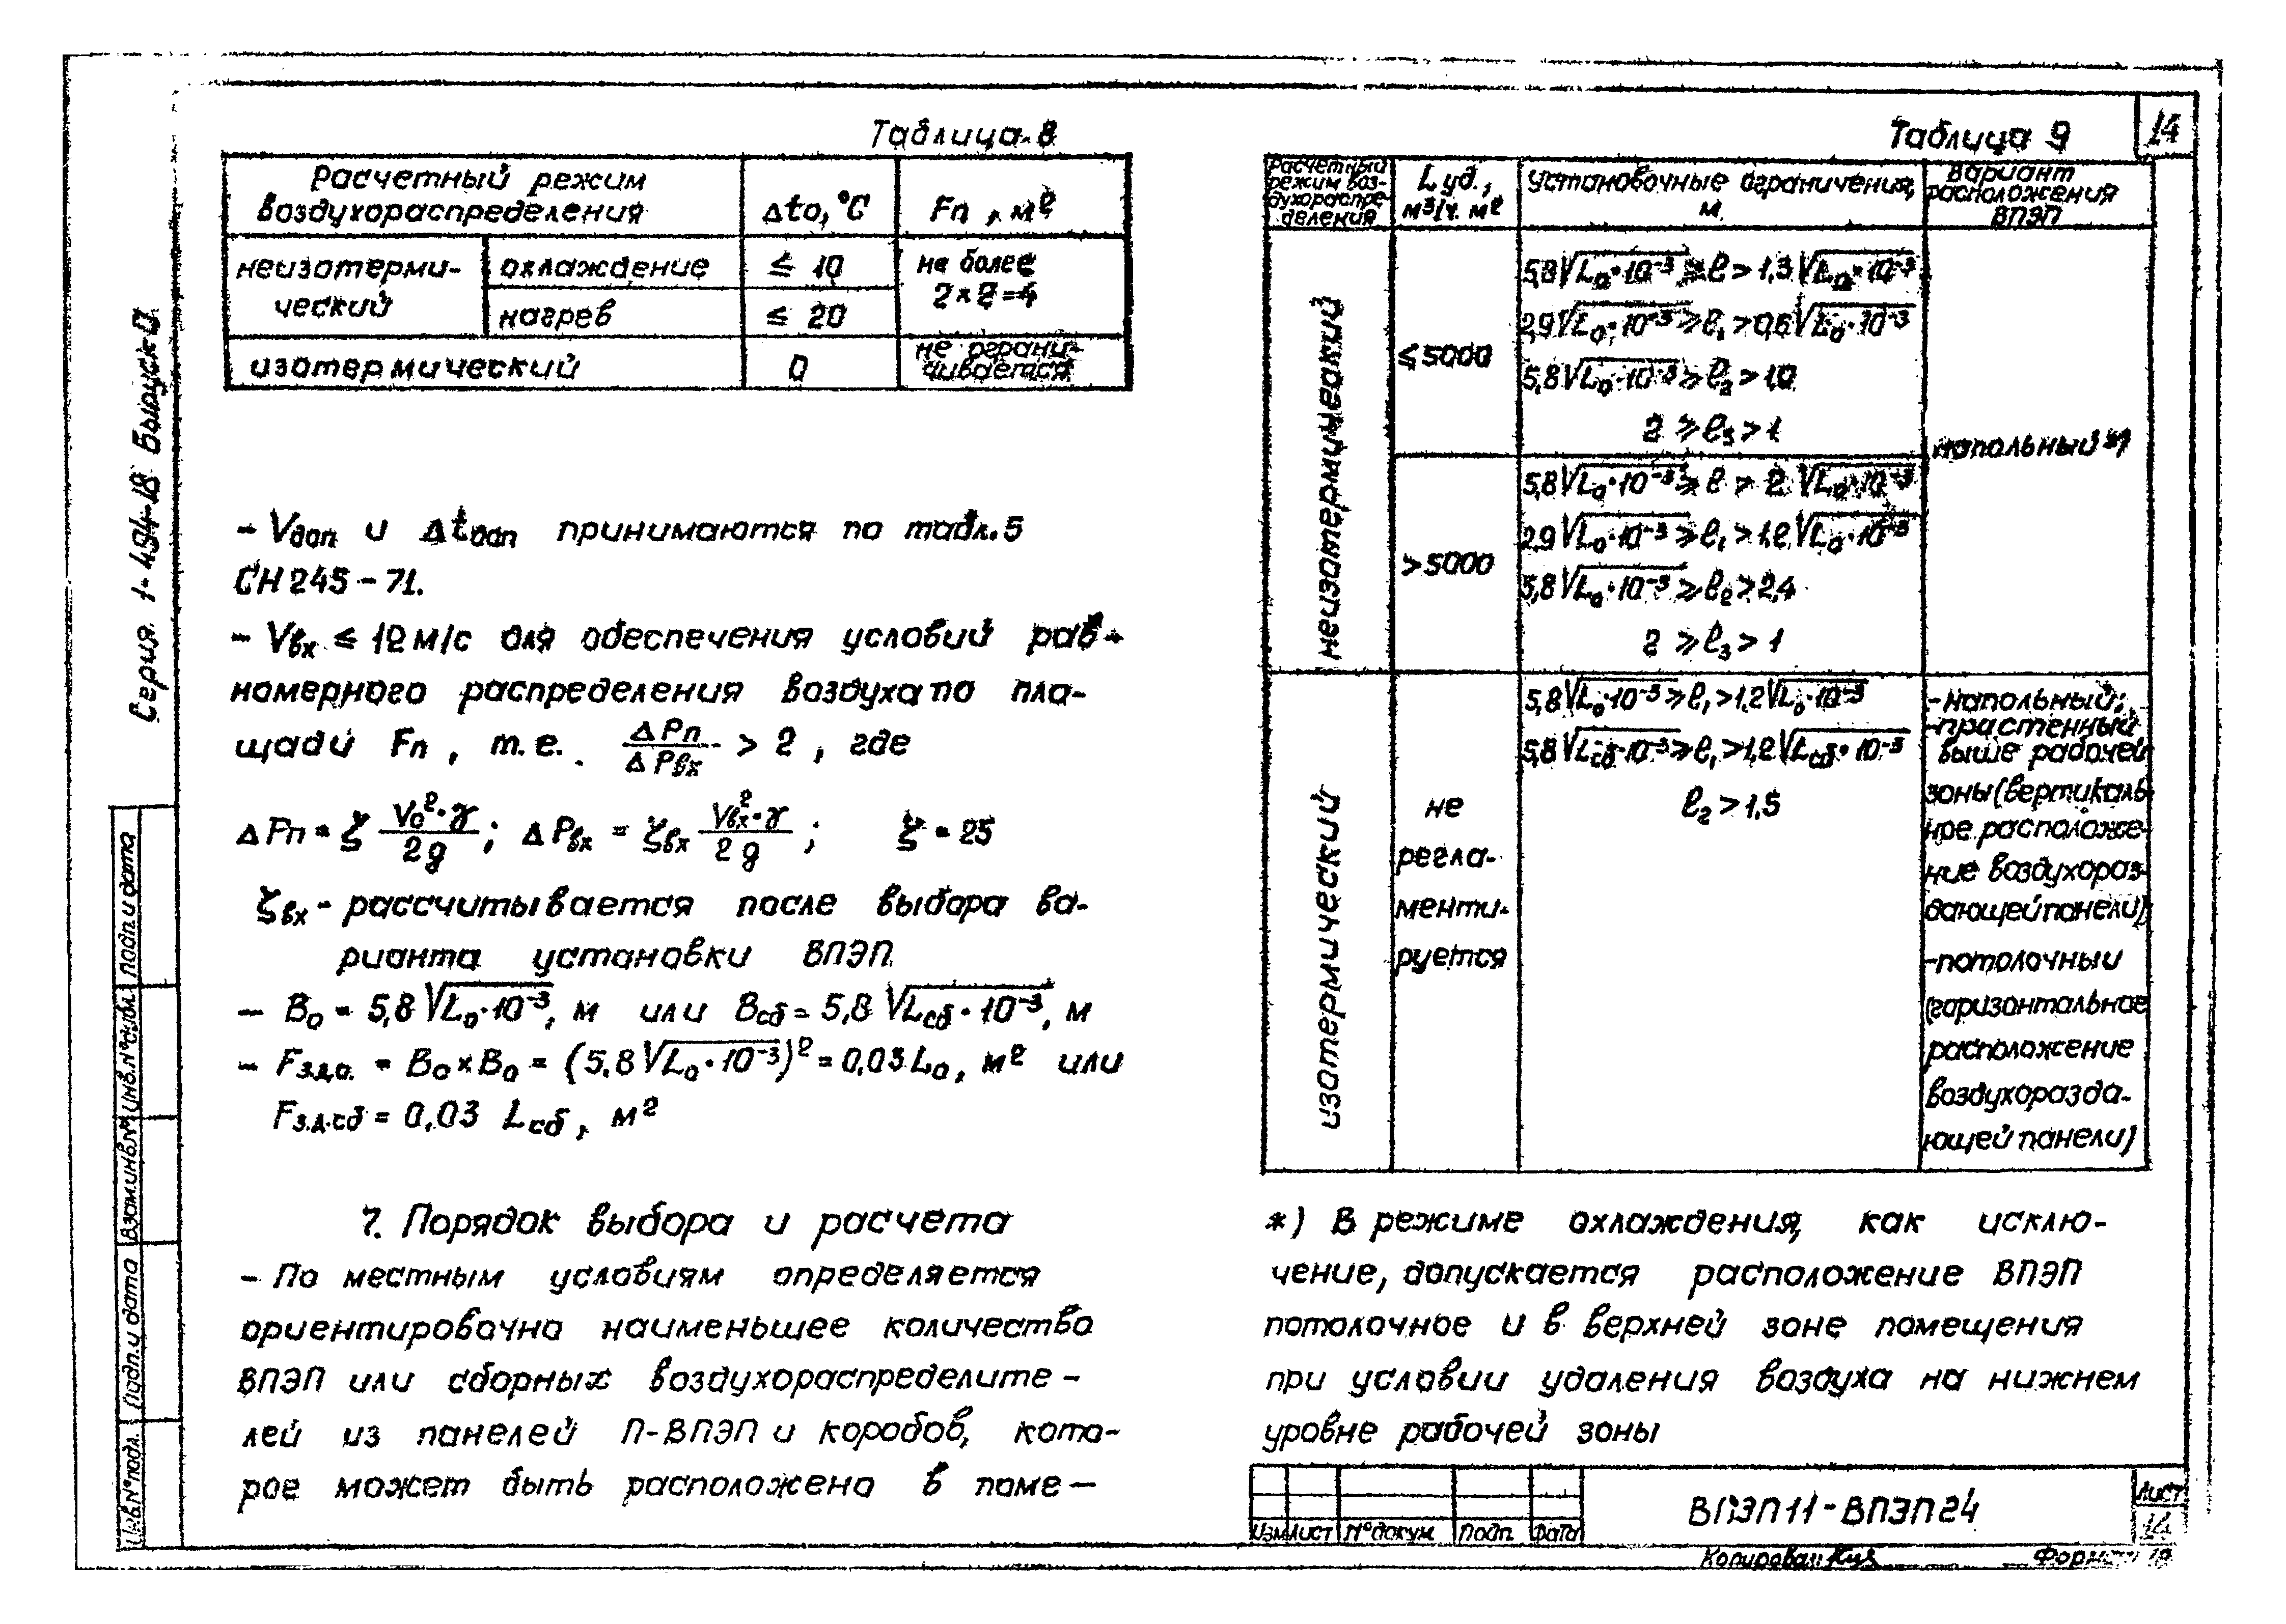 14
Таблица 8
Расчетный режим воздухораспределения | Δtо, °С | Fп, м²
неизотермический | охлаждение | ≤ 10 | не более 2×2=4
нагрев | ≤ 20
изотермический | 0 | не ограничивается
- Vдоп и Δtдоп принимаются по табл.5
СН 245-71.
- Vвх ≤ 12 м/с для обеспечения условий рав-
номерного распределения воздуха по пло-
щади Fп, т.е. ΔPп/ΔPвх > 2, где
ΔPп = ζ Vо²·γ/2g; ΔPвх = ζвх Vвх²·γ/2g; ξ = 25
ζвх - рассчитывается после выбора ва-
рианта установки ВПЭП
- Bо = 5,8 √Lо·10⁻³, м или Bсб = 5,8 √Lсб·10⁻³, м
- Fз.д.о. = Bо×Bо = (5,8√Lо·10⁻³)² = 0,03 Lо, м² или
Fз.д.сб = 0,03 Lсб, м²
7. Порядок выбора и расчета
- По местным условиям определяется
ориентировочно наименьшее количество
ВПЭП или сборных воздухораспределите-
лей из панелей П-ВПЭП и коробов, кото-
рое может быть расположено в поме-
Таблица 9
Расчетный режим воз-
духораспре-
деления
Lуд., м³/ч. м²
Установочные ограничения, м
Вариант расположения ВПЭП
неизотермический
≤5000
5,8√Lо·10⁻³ ≥ ℓ > 1,3√Lо·10⁻³
2,9√Lо·10⁻³ ≥ ℓ₁ > 0,6√Lо·10⁻³
5,8√Lо·10⁻³ ≥ ℓ₂ > 1,0
2 ≥ ℓ₃ > 1
напольный *)
>5000
5,8√Lо·10⁻³ ≥ ℓ > 2 √Lо·10⁻³
2,9√Lо·10⁻³ ≥ ℓ₁ > 1,2√Lо·10⁻³
5,8√Lо·10⁻³ ≥ ℓ₂ > 2,4
2 ≥ ℓ₃ > 1
изотермический
не
регла-
менти-
руется
5,8√Lо·10⁻³ ≥ ℓ₁ > 1,2√Lо·10⁻³
5,8√Lсб·10⁻³ ≥ ℓ₁ > 1,2√Lсб·10⁻³
ℓ₂ > 1,5
- напольный;
- пристенный
выше рабочей
зоны (вертикаль-
ное расположе-
ние воздухораз-
дающей панели);
- потолочный
(горизонтальное
расположение
воздухоразда-
ющей панели)
*) В режиме охлаждения, как исклю-
чение, допускается расположение ВПЭП
потолочное и в верхней зоне помещения
при условии удаления воздуха на нижнем
уровне рабочей зоны
Серия 1-494-18 Выпуск 0
Подп. и дата
Инв.№ дубл.
Взам.инв.№
Подп. и дата
Инв.№ подл.
Изм Лист № докум. Подп. Дата
ВПЭП11-ВПЭП24
Лист
14
Копировал
Формат